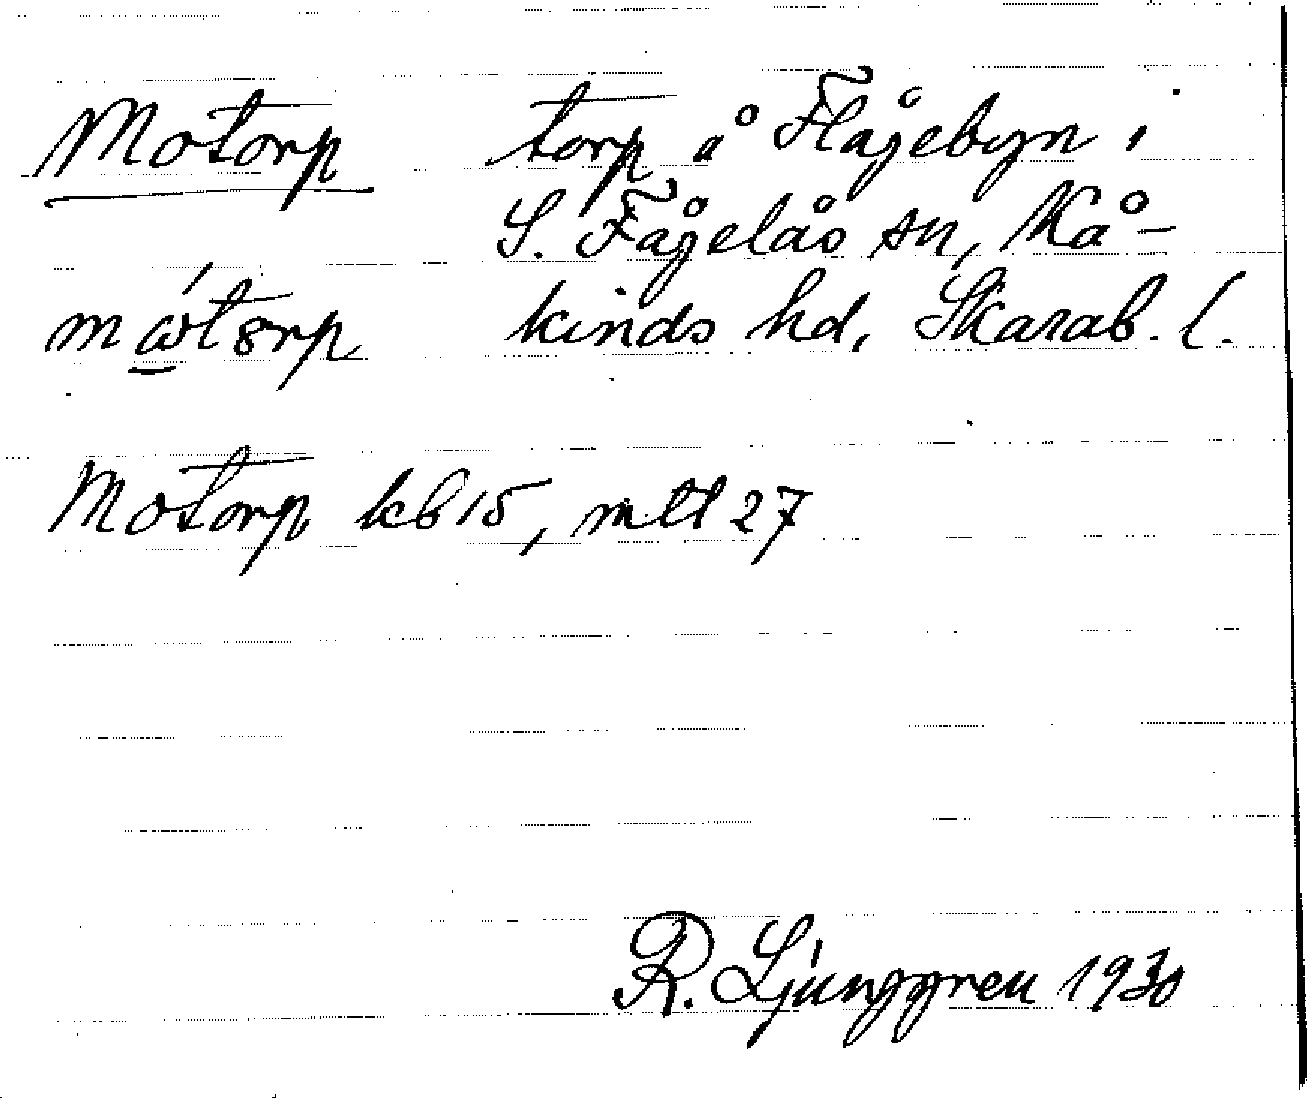 Motorp torp å Flåjebyn i
S. Fågelås sn, Kå-
kinds hd, Skarab. l.
Motorp kb 15, mtl 27
R. Ljunggren 1930